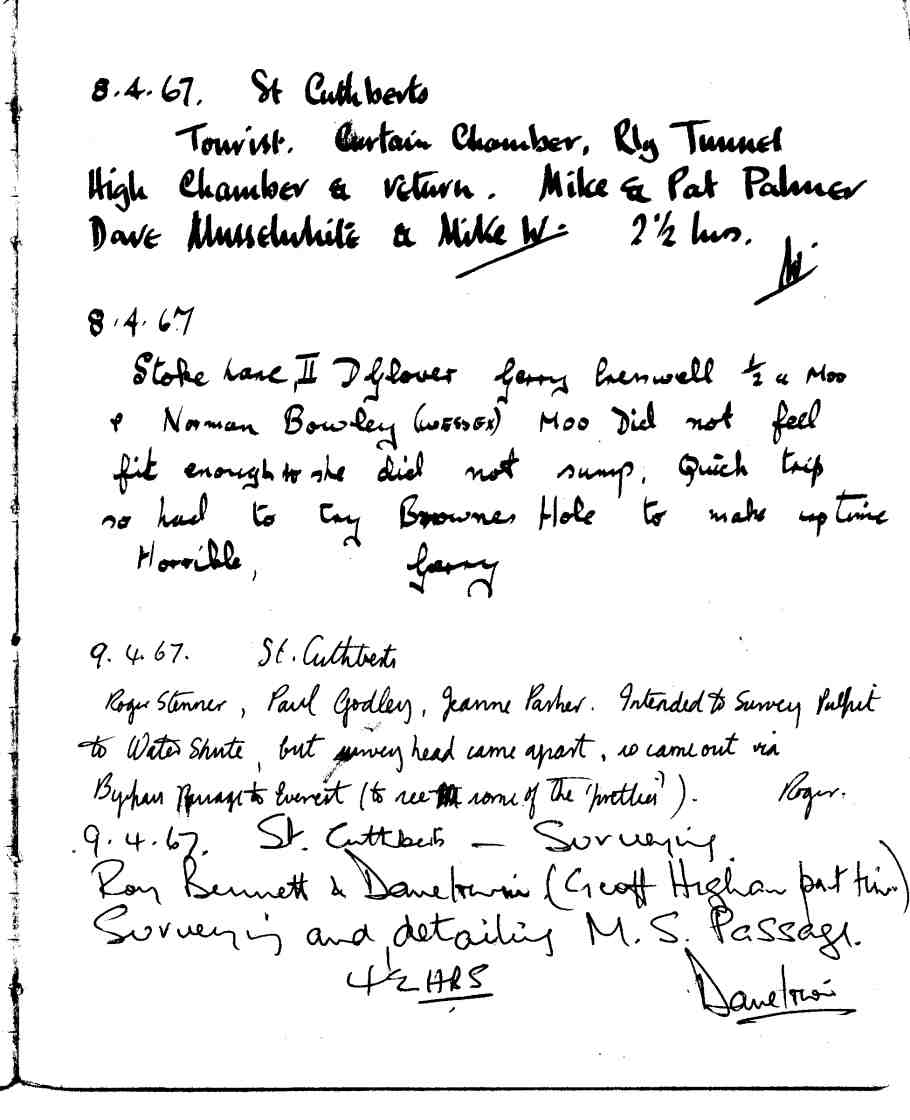 8.4.67. St Cuthberts
Tourist. Curtain Chamber, Rly Tunnel
High Chamber & return. Mike & Pat Palmer
Dave Musselwhite & Mike W. 2½ hrs.
W.
8.4.67
Stoke Lane, II D Glover Gerry ½ a Moo
& Norman Bowley (WESSEX) Moo Did not feel
fit enough to she did not sump, Quich trip
so had to try Brownes Hole to make up time
Horrible, Gerry
9.4.67. St. Cuthberts
Roger Stenner, Paul Godley, Jeanne Parker. Intended to Survey Pulpit
to Water Shute, but survey head came apart, so came out via
Bypass Passage to Everest (to see some of the 'pretties'). Roger.
9.4.67. St. Cuthberts — Surveying.
Roy Bennett & Dave Irwin (Geoff Higham part time)
Surveying and detailing M.S. Passage.
4½ HRS
Dave Irwin